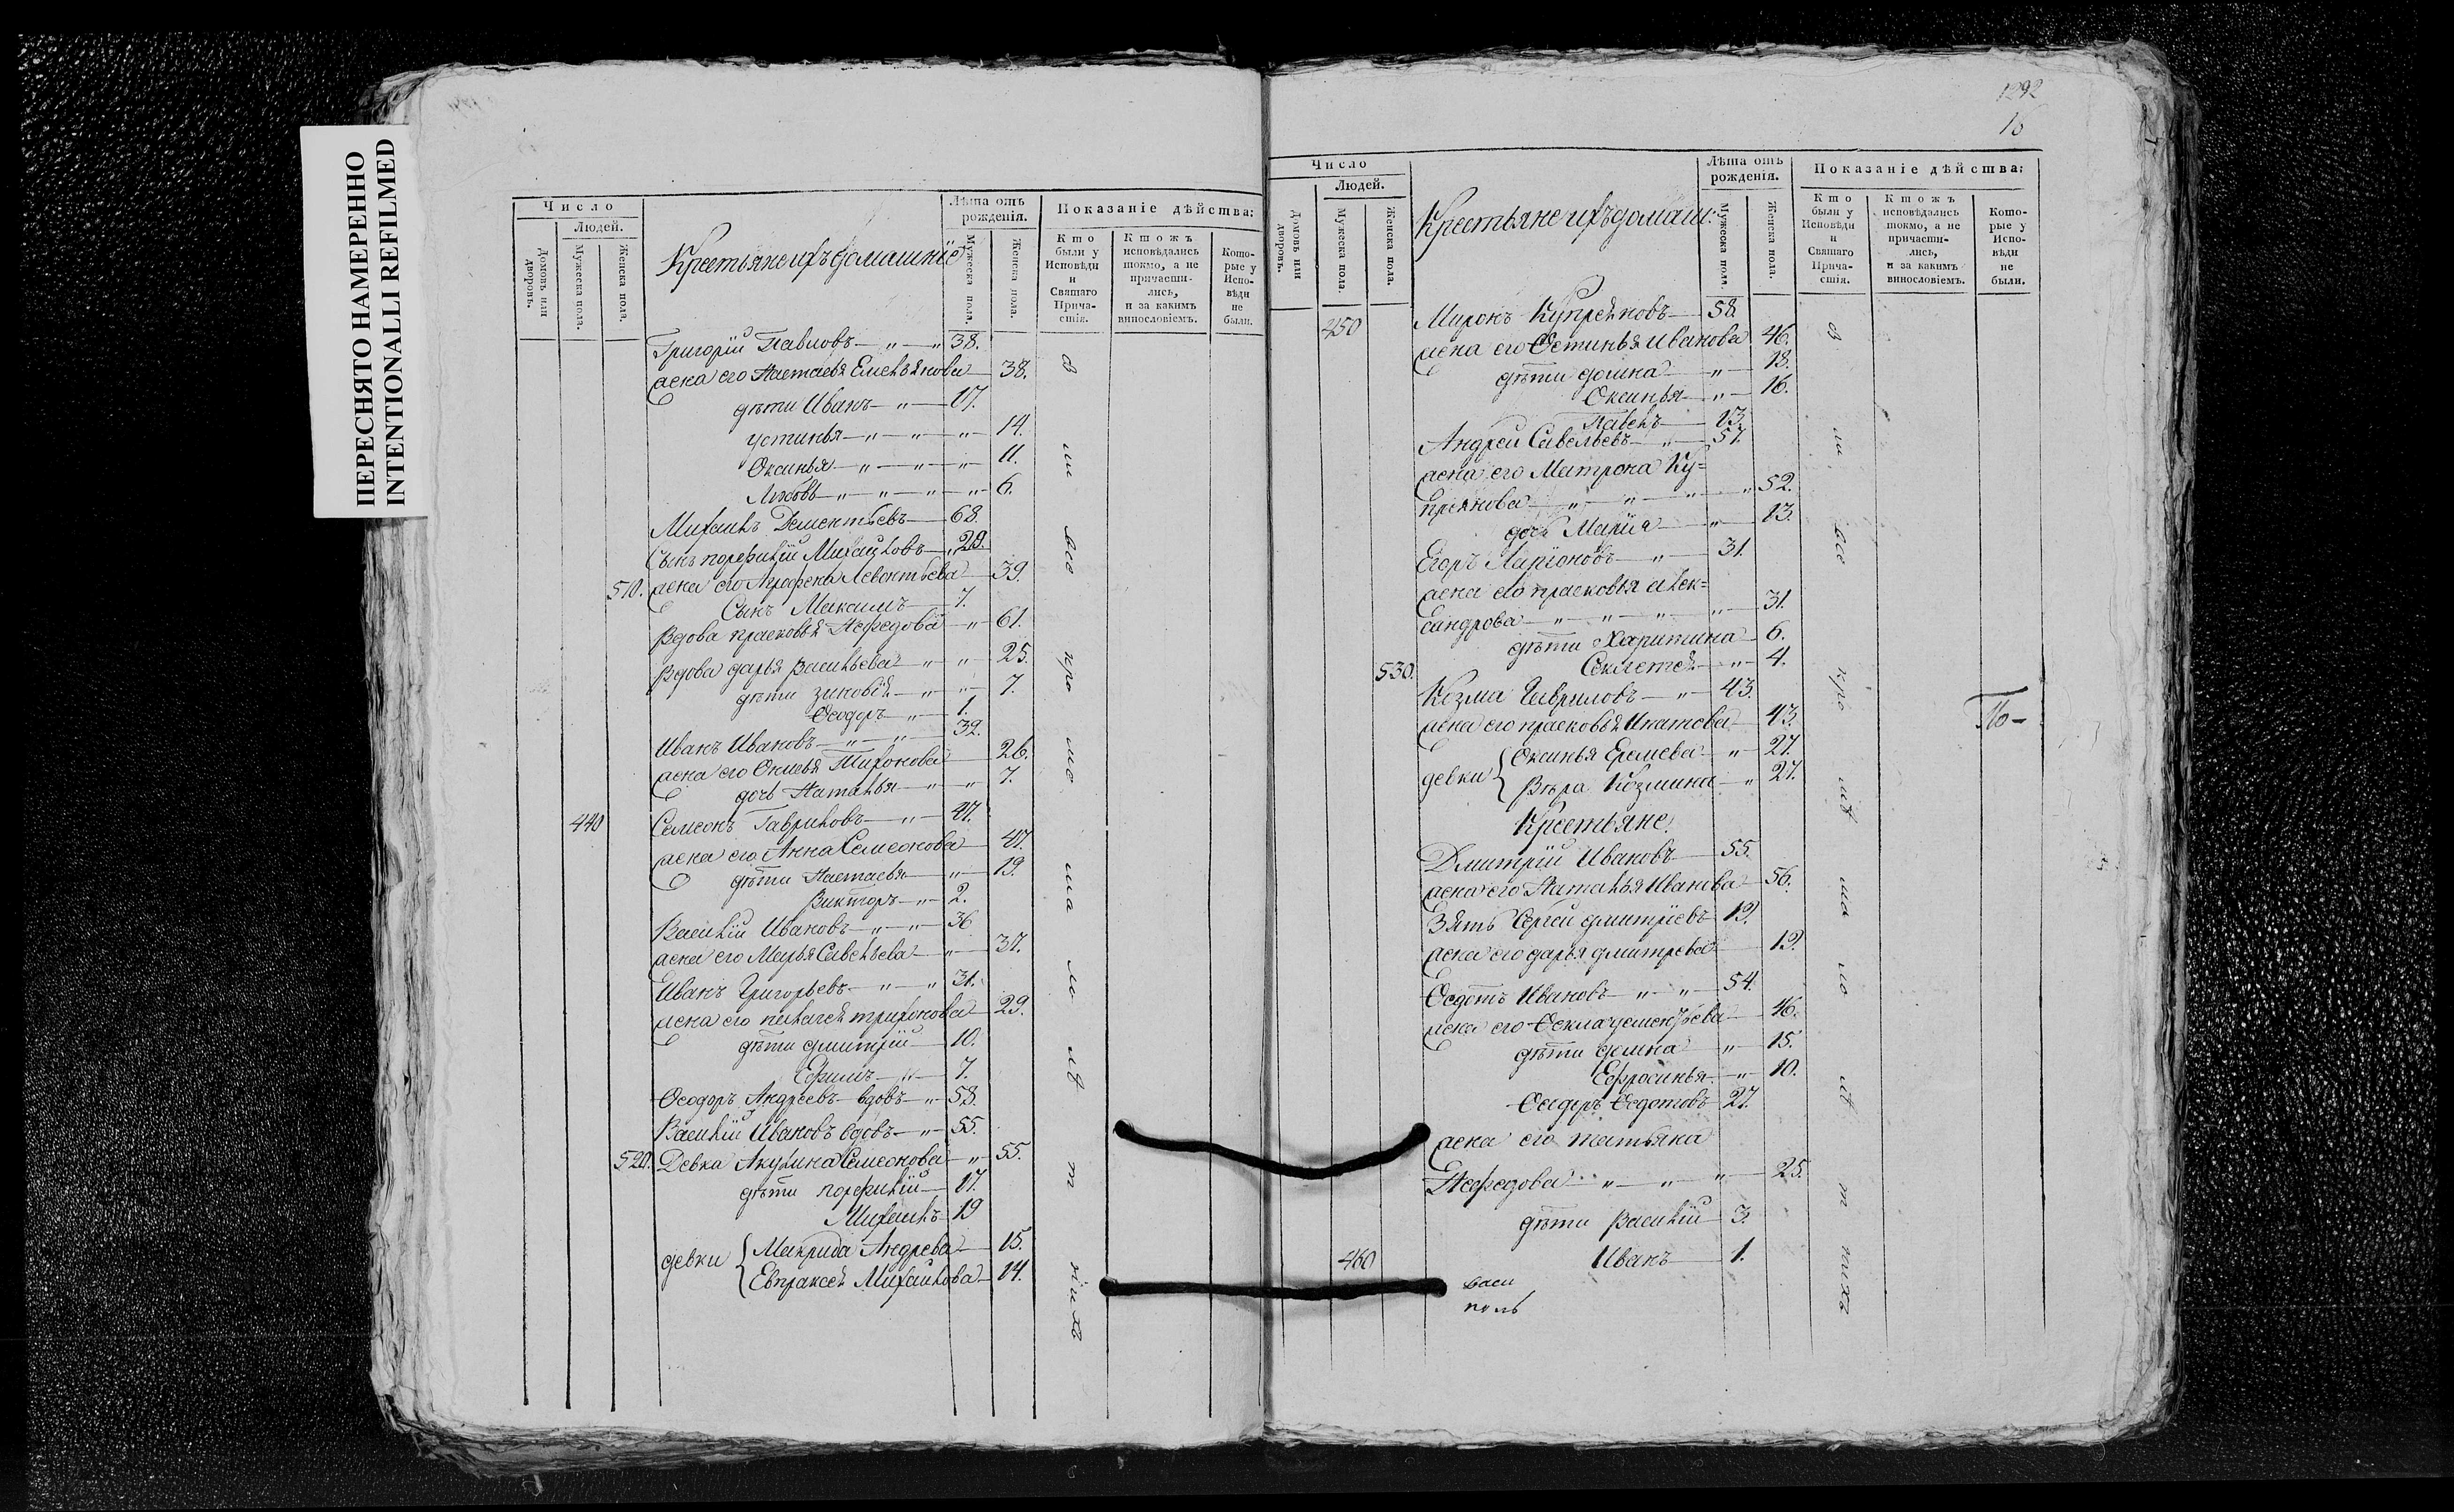 ПЕРЕСНЯТО НАМЕРЕННО
INTENTIONALLI REFILMED
Число
Людей.
Домовъ или дворовъ.
Мужеска пола.
Женска пола.
Крестьяне ихъ домашнїе
Лѣта отъ рожденія.
Мужеска пола.
Женска пола.
Показаніе дѣйства:
Кто были у Исповѣди и Святаго Причастія.
Ктожъ исповѣдались токмо, а не причастились, и за какимъ винословіемъ.
Которые у Исповѣди не были.
Григорїи Павловъ 38.
жена его Настасья Емельянова 38.
дѣти Иванъ 17.
устинья 14.
Оксинья 11.
Любовь 6.
Михаилъ Дементьевъ 68.
Сынъ порфилїи Михаиловъ 29.
510. жена его Аграфена Левонтьева 39.
Сынъ Максимъ 7.
Вдова прасковья Нефедова 61.
Вдова дарья Васильева 25.
дѣти зиновїя 7.
Ѳеодоръ 1.
Иванъ Ивановъ 32.
жена его Тихонова 26.
дочь Наталья 7.
440 Семеонъ Гавриловъ 47.
жена его Анна Семеонова 47.
дѣти Настасья 19.
Викторъ 2.
Василїи Ивановъ 36
жена его Марья Савельева 37.
Иванъ Григорьевъ 31.
жена его пелагея трифонова 29.
дѣти дмитрїи 10.
Ефимъ 7.
Ѳеодоръ Андреевъ вдовъ 58.
Василїи Ивановъ вдовъ 55.
520. Девка Акулина Семеонова 55.
дѣти порфилїи 17.
Михаилъ 19
девки Макрида Андрева 15.
Евпраксея Михаилова 14.
1292
16
Число
Людей.
Домовъ или дворовъ.
Мужеска пола.
Женска пола.
Крестьяне ихъ домаш:
Лѣта отъ рожденія.
Мужеска пола.
Женска пола.
Показаніе дѣйства:
Кто были у Исповѣди и Святаго Причастія.
Ктожъ исповѣдались токмо, а не причастились, и за какимъ винословіемъ.
Которые у Исповѣди не были.
450 Миронъ Купреяновъ 58.
жена его Ѳетинья Иванова 46.
дѣти домна 18.
Оксинья 16.
Павелъ 13.
Андреи Савельевъ 51.
жена его Матрона Ку=
преянова 52.
дочь Марїя 13.
Егоръ Ларїоновъ 31.
жена его прасковья алек=
сандрова 31.
дѣти Харитина 6.
530. Секлетея 4.
Козма Гавриловъ 43.
жена его прасковья Ипатова 43.
девки Оксинья Еремева 27.
Вѣра Козмина 27.
Крестьяне.
Дмитрїи Ивановъ 55.
жена его Наталья Иванова 56.
Зять Сергеи дмитрїевъ 19.
жена его дарья дмитрева 19.
Ѳедотъ Ивановъ 54.
жена его Ѳекла 46.
дѣти домна 15.
Ефросинья 10.
Ѳедоръ Ѳедотовъ 27.
жена его татьяна
Нефедова 25.
дѣти Василїи 3.
460 Иванъ 1.
васи
поль